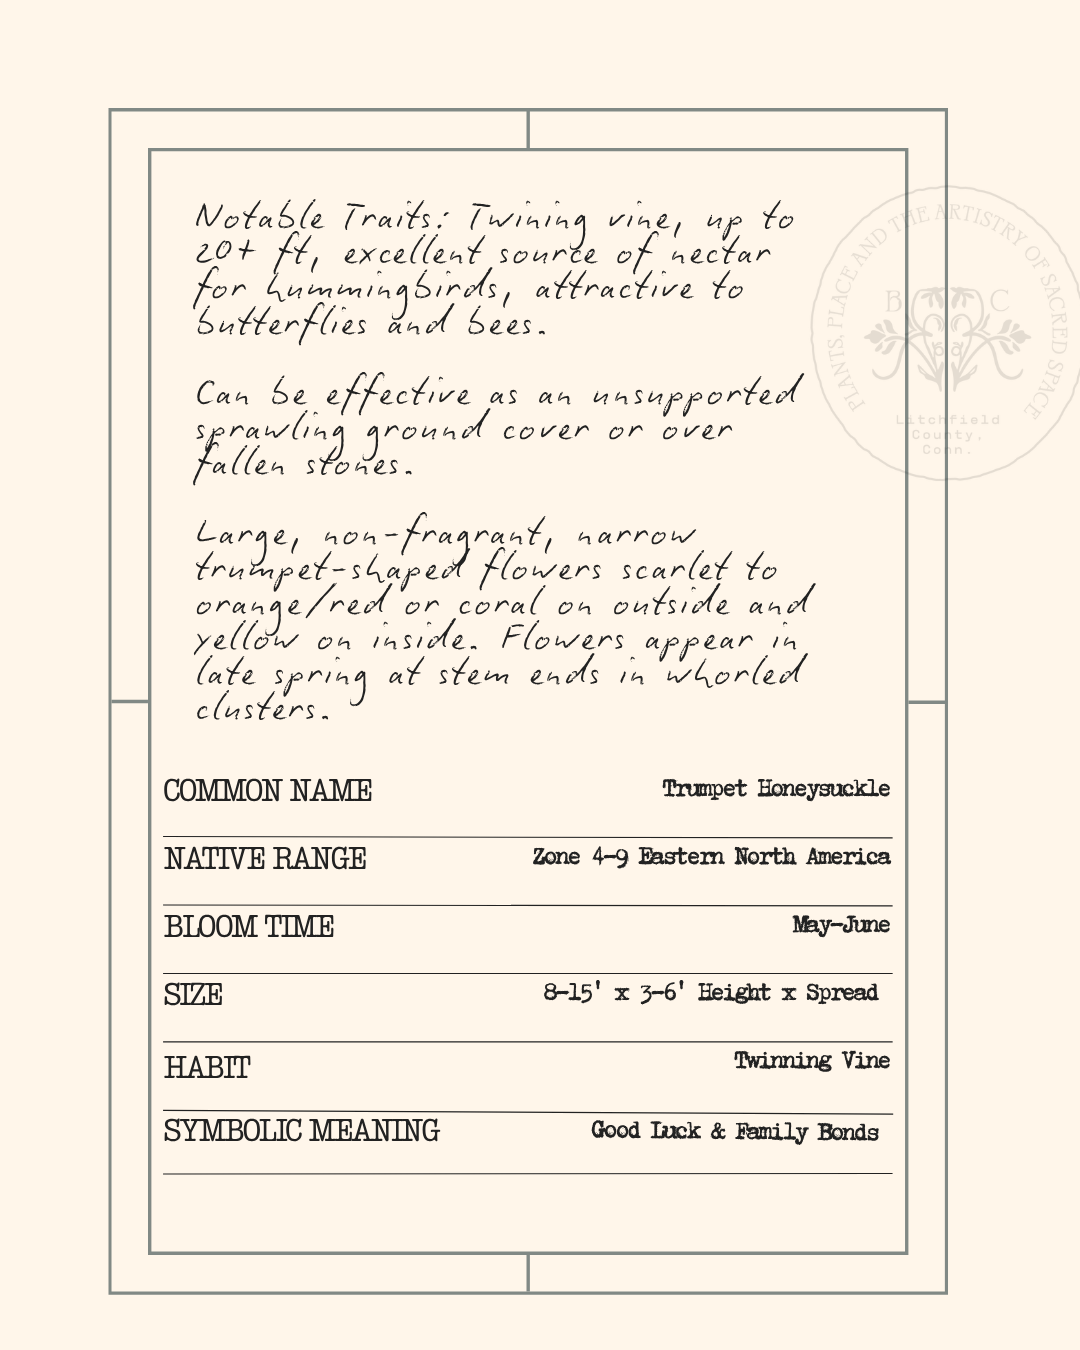 Notable Traits: Twining vine, up to
20+ ft, excellent source of nectar
for hummingbirds, attractive to
butterflies and bees.
Can be effective as an unsupported
sprawling ground cover or over
fallen stones.
Large, non-fragrant, narrow
trumpet-shaped flowers scarlet to
orange/red or coral on outside and
yellow on inside. Flowers appear in
late spring at stem ends in whorled
clusters.
PLANTS, PLACE AND THE ARTISTRY OF SACRED SPACE
B C
Litchfield
County.
Conn.
COMMON NAME Trumpet Honeysuckle
NATIVE RANGE Zone 4-9 Eastern North America
BLOOM TIME May-June
SIZE 8-15' x 3-6' Height x Spread
HABIT Twinning Vine
SYMBOLIC MEANING Good Luck & Family Bonds